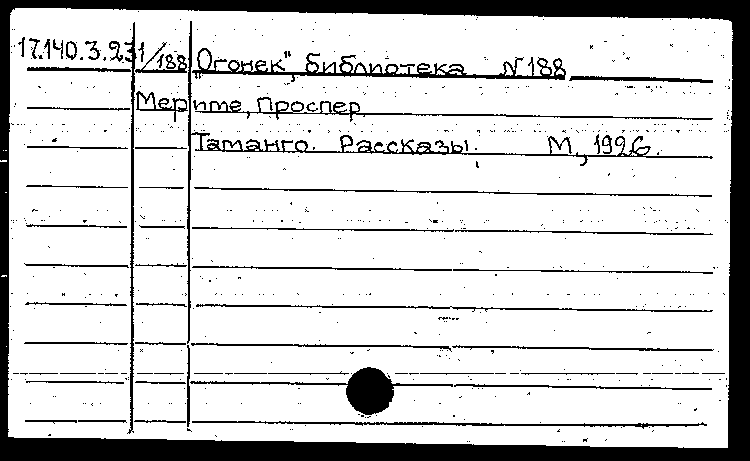 17.140.3.231/188 "Огонек", библиотека N 188
Мериме, Проспер
Таманго. Рассказы. М., 1926.